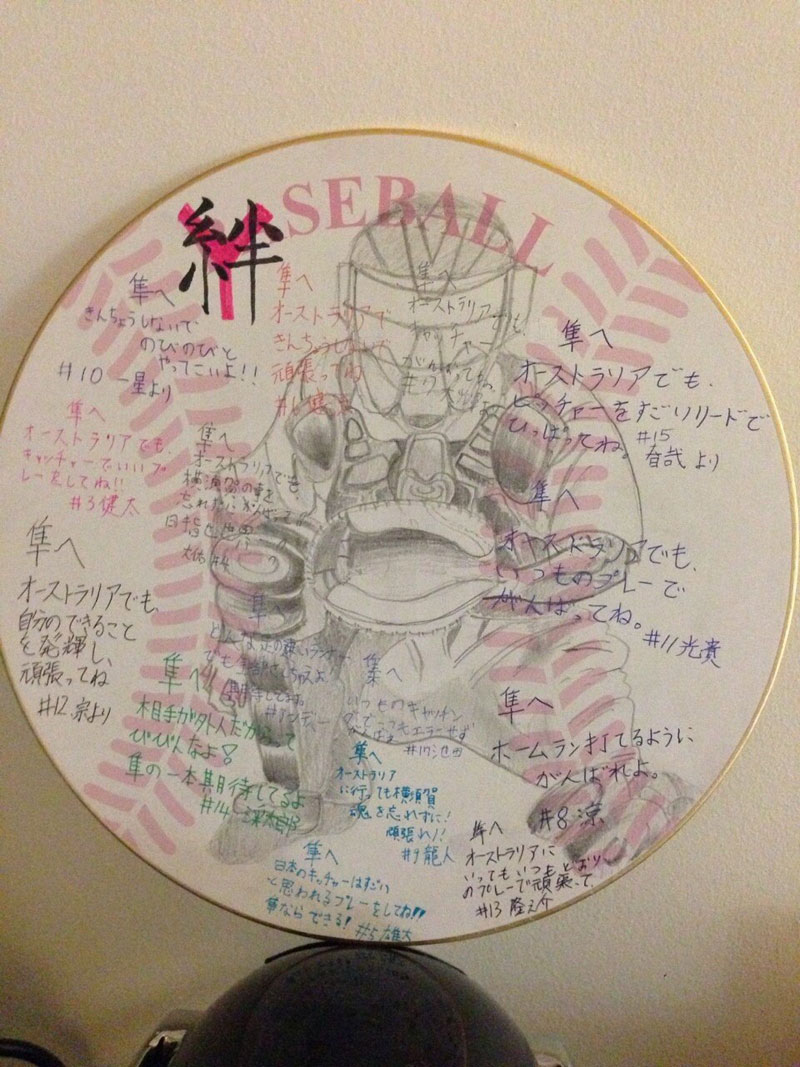 絆
SEBALL
隼へ
きんちょうしないで
のびのびと
やってこいよ!!
#10 一星より
隼へ
オーストラリアで
きんちょうしないで
頑張ってね
隼へ
オーストラリアでも
キャッチャー
がんばってね
隼へ
オーストラリアでも、
ピッチャーをすごいリードで
ひっぱってね。 #15
春哉より
隼へ
オーストラリアでも、
キャッチャーでいいプ
レーをしてね!!
#3 健太
隼へ
オーストラリアでも、
横須賀の事を
忘れたに がんばって
目指せ世界一
#4
隼へ
オーストラリアでも、
いつものプレーで
がんばってね。
#11 光貴
隼へ
オーストラリアでも、
自分のできること
を発揮し、
頑張ってね
#12 宗より
隼へ
どんな足の速いランナー
でも
期待してます。
#アンディー
隼へ
いつものキャッチン
がんばれ
#17
隼へ
相手が外人だからって
びびんなよ!
隼の一本期待してるよ
#14 涼太郎
隼へ
ホームラン打てるように
がんばれよ。
#8 涼
隼へ
オーストラリア
に行っても横須賀
魂を忘れずに!
頑張れ!!
#9 龍人
隼へ
オーストラリアに
いってもいつもどおり
のプレーで頑張って
#13 隆之介
隼へ
日本のキャッチャーはすごい
と思われるプレーをしてね!!
隼ならできる! #5 雄大